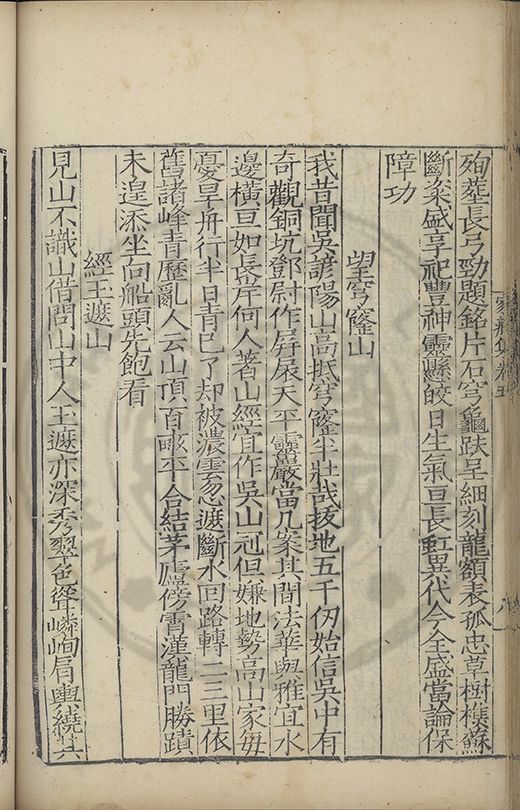 殉塟長弓勁題銘片石穹龜趺呈細刻龍額表孤忠草樹樵蘇
斷粢盛享祀豐神靈懸皎日生氣亘長虹異代今全盛當論保
障功
望穹窿山
我昔聞吳諺陽山高抵穹窿半壯哉拔地五千仞始信吳中有
奇觀銅坑鄧尉作屏扆天平靈巖當几案其間法華與雅宜水
邊橫亘如長岸何人著山經宜作吳山冠但嫌地勢高山家每
憂旱舟行半日青已了却被濃雲忽遮斷水回路轉二三里依
舊諸峰青歷亂人云山頂百畝平合結茅廬傍霄漢龍門勝蹟
未遑添坐向船頭先飽看
經玉遮山
見山不識山借問山中人玉遮亦深秀翠色聳嶙峋肩輿繞其
家藏集卷五
八